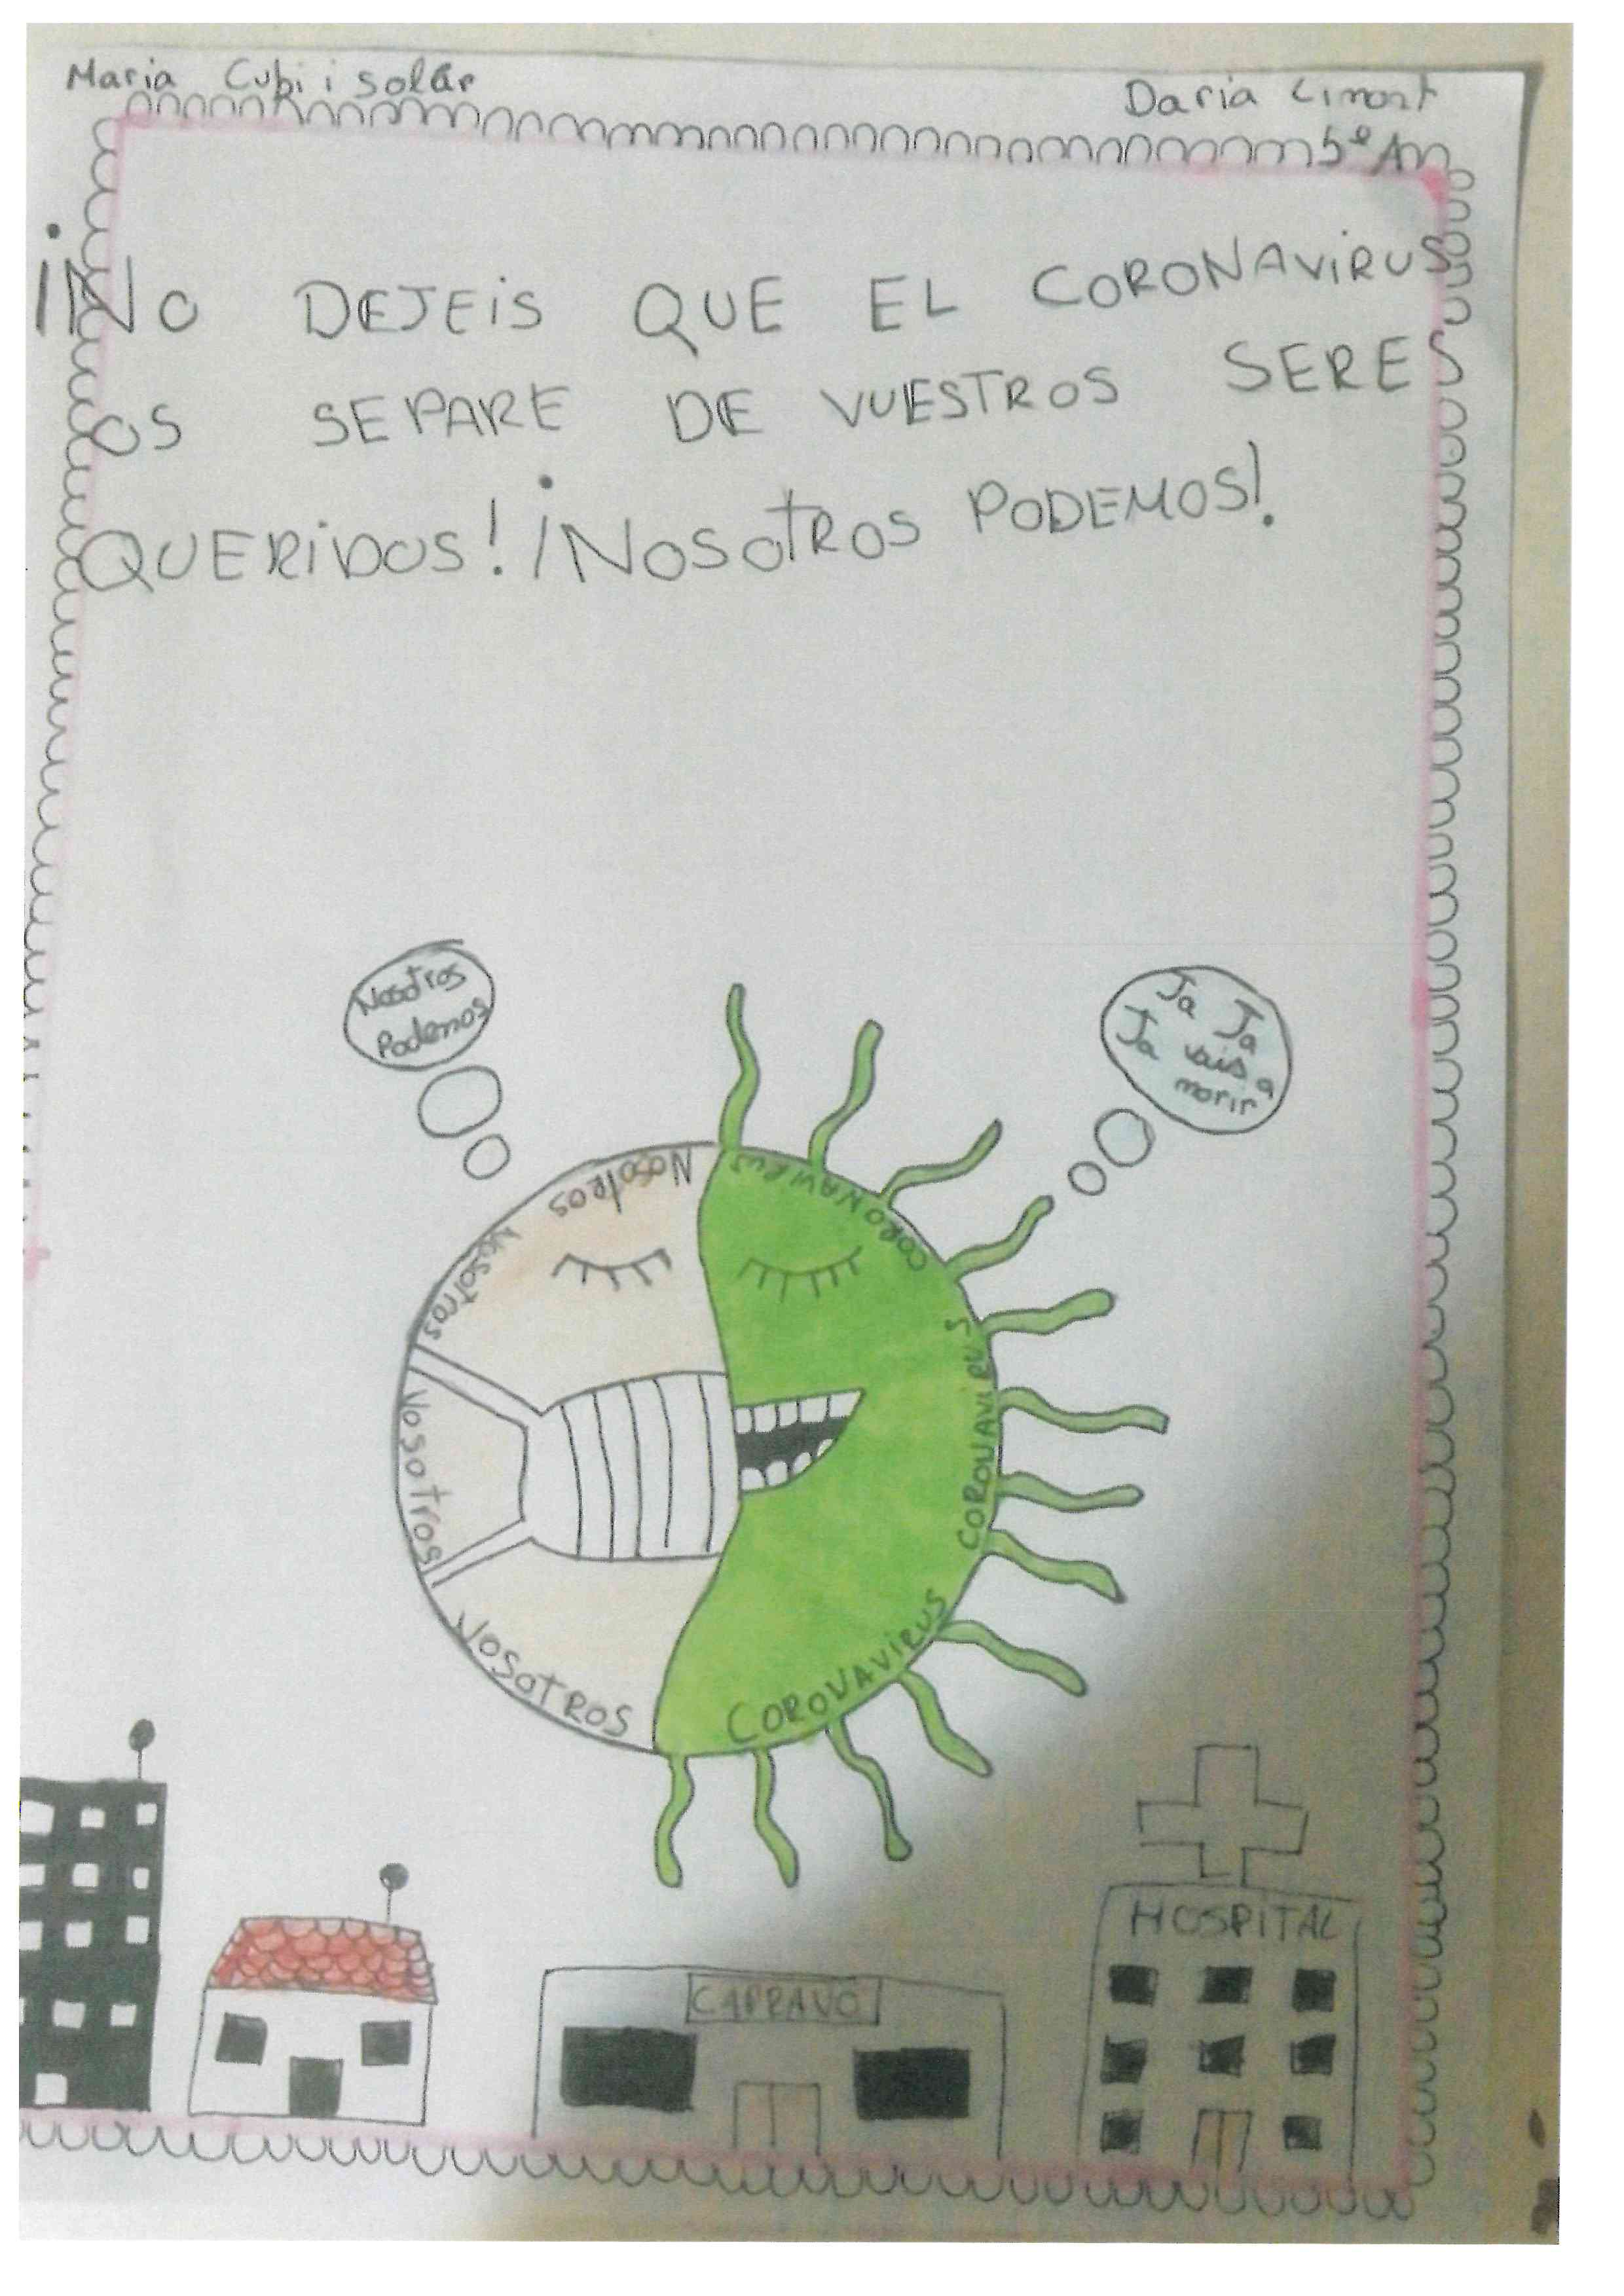 Maria Cubi i solár
Daria Limont
5º A
¡NO DEJEIS QUE EL CORONAVIRUS
OS SEPARE DE VUESTROS SERES
QUERIDOS! ¡NOSOTROS PODEMOS!
Nosotros
Podemos
Ja Ja
Ja vais a
morir
Nosotros
Nosotros
Nosotros
NOSOTROS
CORONAVIRUS
CORONAVIRUS
CORONAVIRUS
HOSPITAL
CAPRAVO